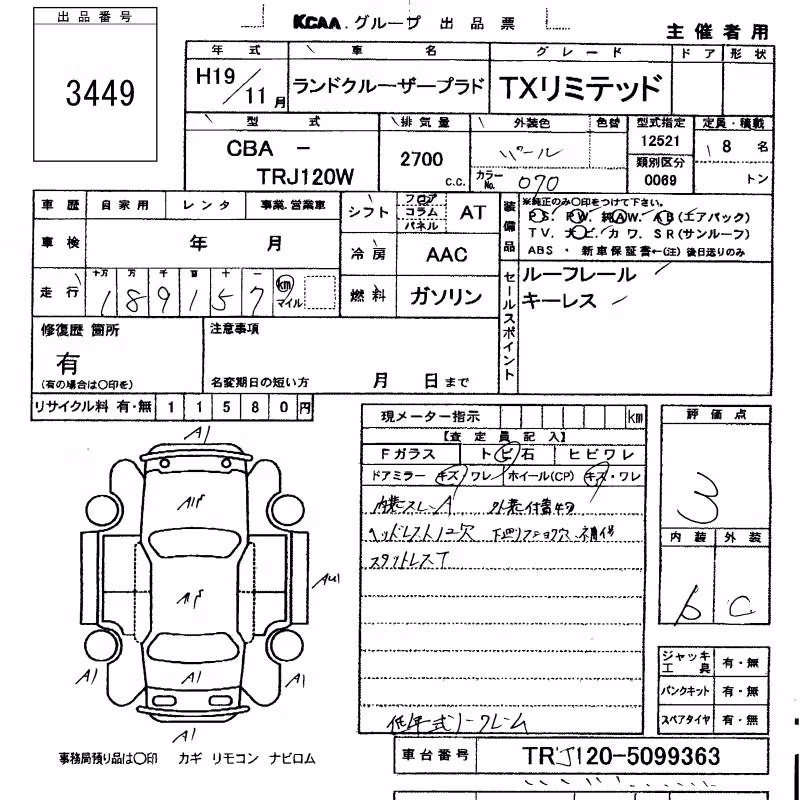 出品番号
3449
KCAA.グループ 出品票
主催者用
年式 車名 グレード ドア 形状
H19/11月 ランドクルーザープラド TXリミテッド
型式 排気量 外装色 色替 型式指定 定員・積載
CBA － TRJ120W 2700 c.c. パール 12521 8名
カラーNo. 070 類別区分 0069 トン
車歴 自家用 レンタ 事業.営業車
車検 年 月
走行 十万 万 千 百 十 一
189157 km マイル
シフト フロア コラム パネル AT
冷房 AAC
燃料 ガソリン
装備品
※純正のみ○印をつけて下さい。
P.S. P.W. 純AW. A.B(エアバック)
T.V. ナビ. カワ. SR(サンルーフ)
ABS ・ 新車保証書←(注) 後日送りのみ
セールスポイント
ルーフレール
キーレス
修復歴 箇所
有
(有の場合は○印を)
注意事項
名変期日の短い方 月 日まで
リサイクル料 有・無 11580円
現メーター指示 km
【査定員記入】
Fガラス トビ石 ヒビワレ
ドアミラー キズ ワレ ホイール(CP) キズ・ワレ
内装スレ、A
ヘッドレスト
スタットレスT
低年式ノークレーム
評価点
3
内装 外装
b C
ジャッキ工具 有・無
パンクキット 有・無
スペアタイヤ 有・無
A1
A1
A1
A1
A1
A1
事務局預り品は○印 カギ リモコン ナビロム
車台番号 TRJ120-5099363